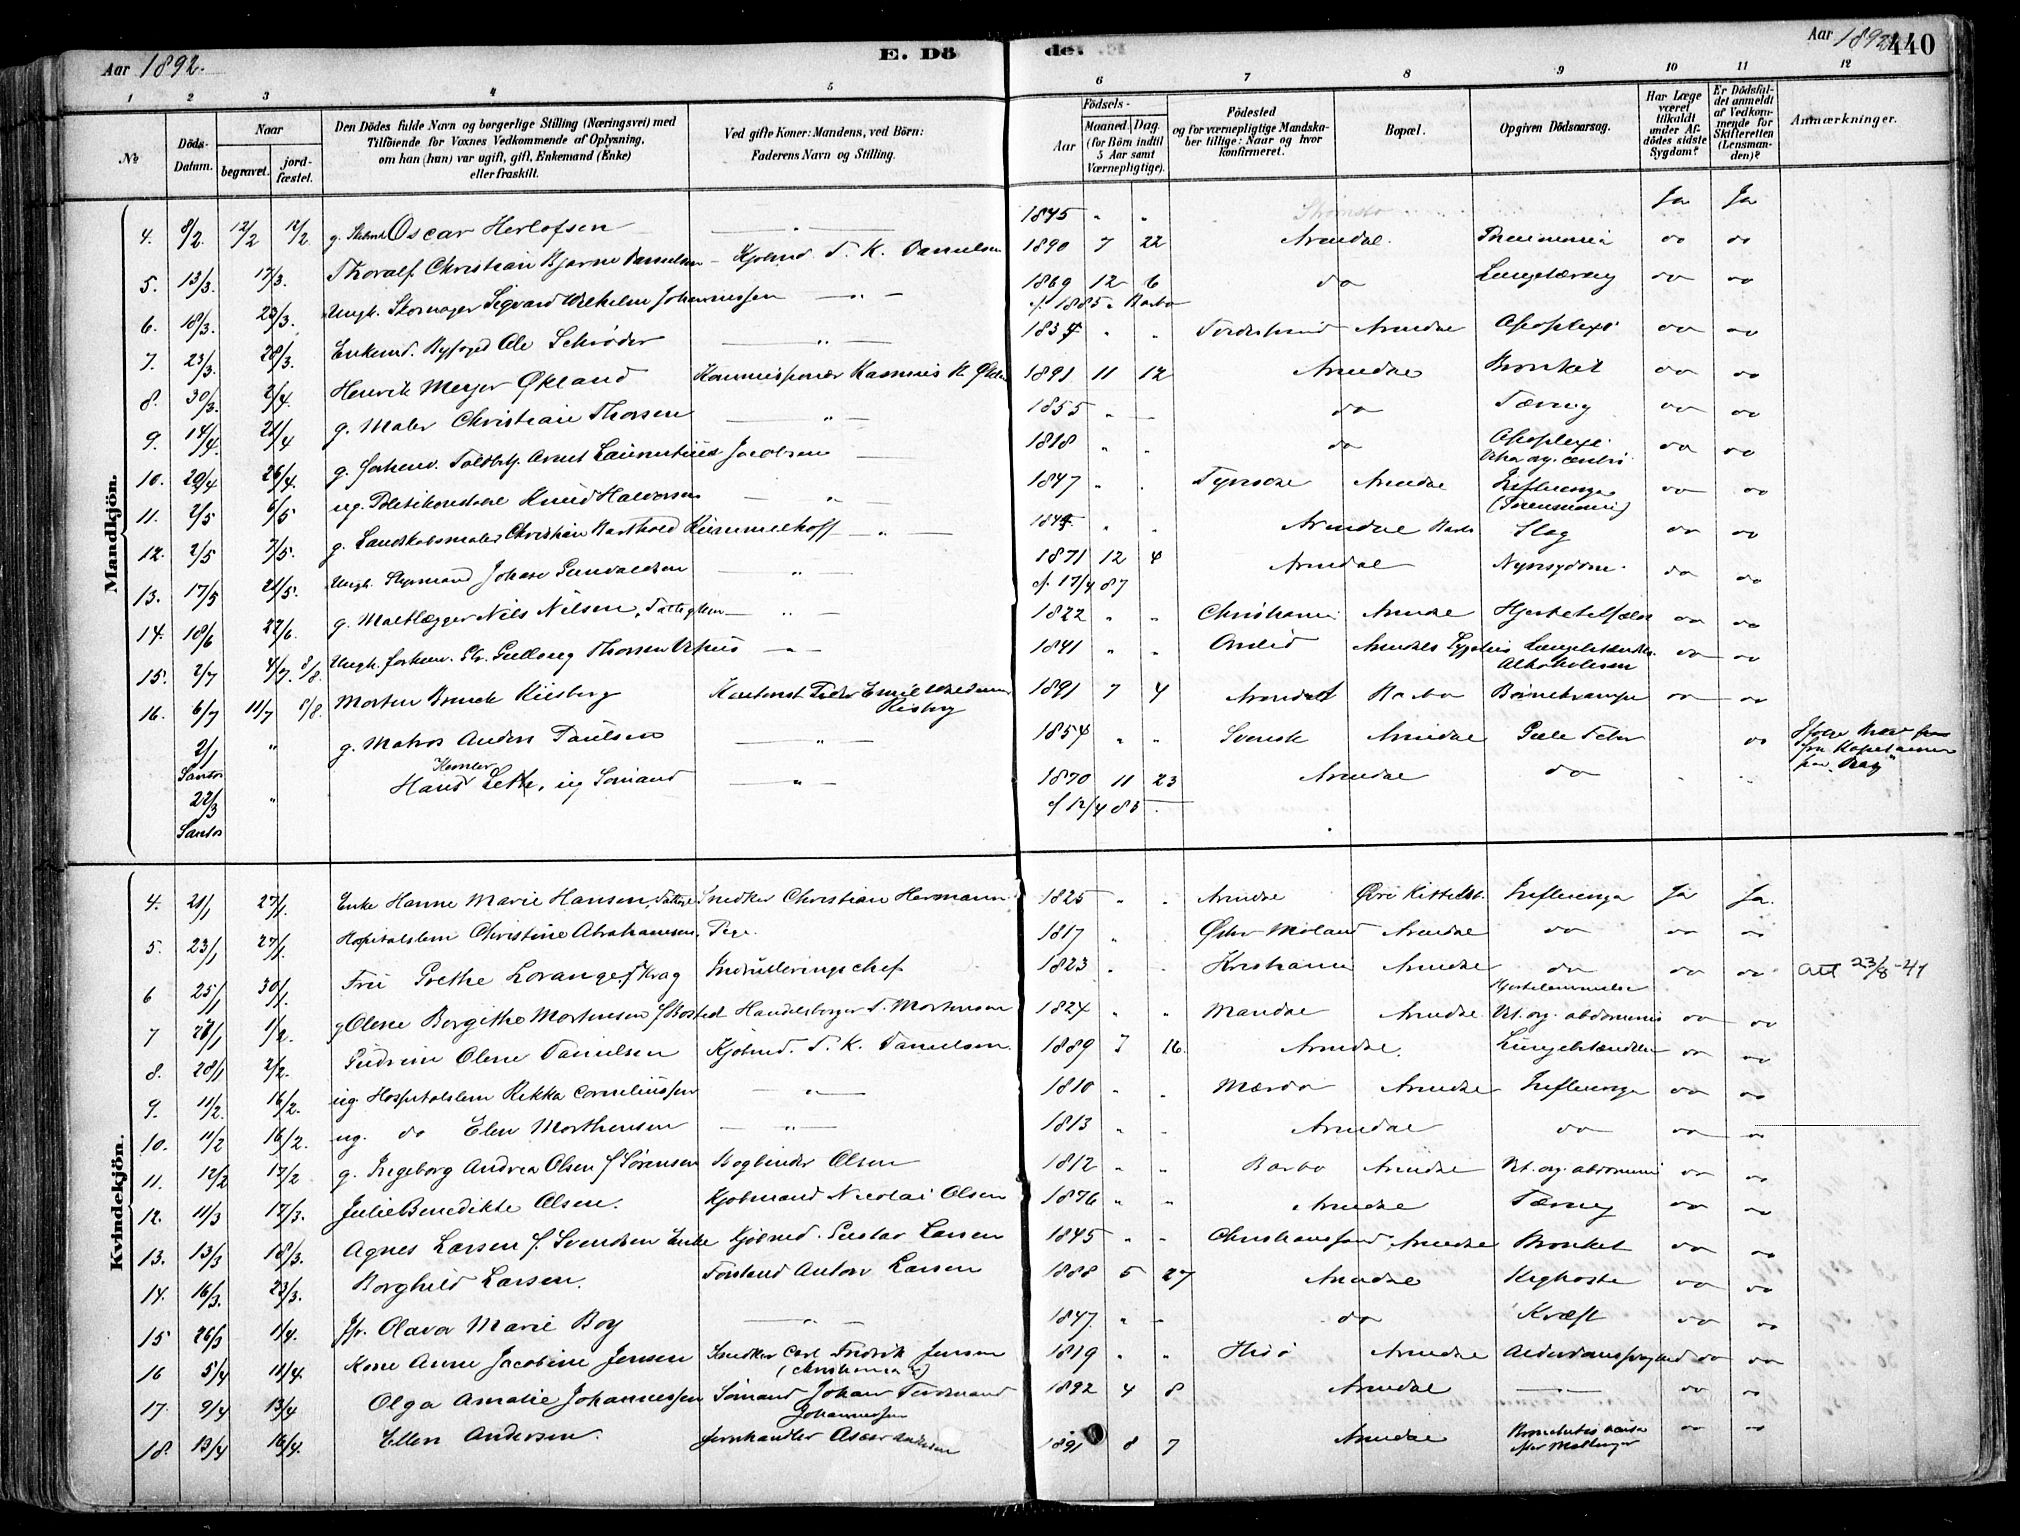 Aar 1892.
E. Dö
de.
Aar 1892
440
1 2 3 4 5 6 7 8 9 10 11 12
No
Döds-Datum.
Naar
begravet.
jordfæstet.
Den Dödes fulde Navn og borgerlige Stilling (Næringsvei) med
Tilföiende for Voxnes Vedkommende af Oplysning,
om han (hun) var ugift, gift, Enkemand (Enke)
eller fraskilt.
Ved gifte Koner: Mandens, ved Börn:
Faderens Navn og Stilling.
Födsels-
Aar
Maaned. Dag.
(for Börn indtil
5 Aar samt
Værnepligtige).
Födested
og for værnepligtige Mandska-
ber tillige: Naar og hvor
konfirmeret.
Bopæl.
Opgiven Dödsaarsag.
Har Læge
været
tilkaldt
under Af-
dödes sidste
Sygdom?
Er Dödsfal-
det anmeldt
af Vedkom-
mende for
Skifteretten
(Lensman-
den)?
Anmærkninger.
Mandkjön.
4. 8/2. 12/2 12/2 g. Oscar Herlofsen — " — 1845 " " Ja Ja
5. 13/3. 17/3. Thoralf Christian Bjarne Danielsen — Kjøbmd. T. K. Danielsen 1890 7 22 Arendal. Pneumonia do do
6. 18/3. 23/3. Ungk. Skomager Sigvard Wilhelm Johannessen — " — 1869 12 6 do Lungetæring do do
cf. 1885. Barbo
7. 23/3. 28/3. Enkemd. Byfoged Ole Schrøder — " — " " Arendal Apoplexi do do
8. 30/3. 2/4. Henrik Meyer Økland Kommissionær Rasmus 1891 11 12 Arendal Bronket do do
9. 14/4 21/4 g. Maler Christian Thorsen — " — 1855 " — do Tæring do do
10. 20/4 26/4. g. forhenv. Toldbetj. Arnt Laurentius Jacobsen — 1818 " do Apoplexi do do
11. 2/5 6/5 ug. Politikonstabel Knud Halvorsen — " — 1847 " . Arendal Influenza do do
(Pneumoni)
12. 2/5 7/5. g. Landskabsmaler Christian Barthold Kimmelhoff — " — " " Arendal Barbo Slag do do
13. 17/5 21/5. Ungk. Styrmand Johan Gundersen — " — 1871 12 4 Arendal Nyresygdom. do do
cf. 17/4 87
14. 18/6 22/6. g. Nils Nilsen, — " — 1822 " " Christiania Arendal do do
15. 2/7 4/7. 8/8. Ungk. forhenv. — " — 1841 " " Omlid Arendals Sygehus do do
Alkoholisme
16. 6/7 11/7 8/8. Morten Brinck Kiisberg 1891 7 4 Arendal Barbo Børnekrampe do do
2/1 " g. Matros Anders Paulsen — " — 1854 " " Svensk Arendal Gule Feber do
Santos
22/3 " Hans Kemler Lette, ug Sømand — " — 1870 11 23 Arendal do . "
Santos
cf 12/4 85
Kvindekjön.
4. 21/1 27/1. Enke Hanne Marie Hansen, Snedker Christian Hermann 1825 " " Arendal Influenza Ja Ja.
5. 23/1 27/1. Hospitalslem Christine Abrahamsen, Pige. 1817 " Øster Moland Arendal do do do
6 25/1 30/1. Fru Grethe Lorange f. Krag Indrulleringschef 1823 " . Kristiania Arendal do do do Att 23/8-41
7 28/1 1/2. g Olene Borgithe Mortensen f. Handelsborger T. Mortensen 1824 " " Mandal Arendal Vit. org. abdominis do do
8. 28/1 2/2. Gudrun Olene Danielsen Kjøbmd. T. K. Danielsen. 1889 7 16. Arendal. Lungebetændelse do do
9. 11/2. 16/2. ug. Hospitalslem Rikka Corneliussen — " — 1810 " . Mærdø Arendal Influenza do do
10. 11/2 16/2. ug. do Elen Morthensen — " — 1813 " . Arendal do do do
11. 12/2 17/2 g. Ingeborg Andrea Olsen f. Sørensen Bogbinder Olsen 1812 " " Barbo Arendal Vit. org. abdominis do do
12. 11/3 17/3. Julie Benedikte Olsen. Kjøbmand Nicolai Olsen 1876 " " Arendal Tæring do do
13. 13/3 18/3. Agnes Larsen f. Svendsen Enke Kjøbmd. Gustav Larsen 1845 " " Christianssand Arendal Bronket do do
14. 16/3. 23/3. Borghild Larsen. Anton Larsen 1888 5 27 Arendal Kighoste do do
15 26/3 1/4. Jfr. Olava Marie Boy — " — 1847. " — do Kræft do do
16 5/4 11/4. Kone Anne Jacobine Jensen Snedker Carl Fredrik Jensen 1819 " " Hisø Arendal Alderdomssvaghed do do
17. 9/4 13/4 Olga Amalie Johannessen Sømand Johan Ferdinand 1892 4 8 Arendal — " — do do
Johannessen
18. 13/4 16/4. Ellen Andersen. Jernhandler Oscar Andersen 1891 8 7 Arendal do do